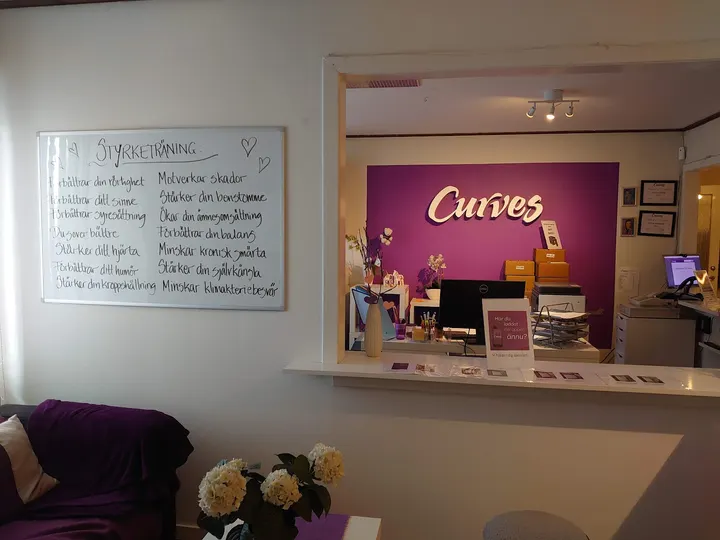 STYRKETRÄNING
Förbättrar din rörlighet
Förbättrar ditt sinne
Förbättrar syresättning
Du sover bättre
Stärker ditt hjärta
Förbättrar ditt humör
Stärker din kroppshållning
Motverkar skador
Stärker din benstomme
Ökar din ämnesomsättning
Förbättrar din balans
Minskar kronisk smärta
Stärker din självkänsla
Minskar klimakteriebesvär
Curves
DELL
Har du
laddat
ner appen
ännu?